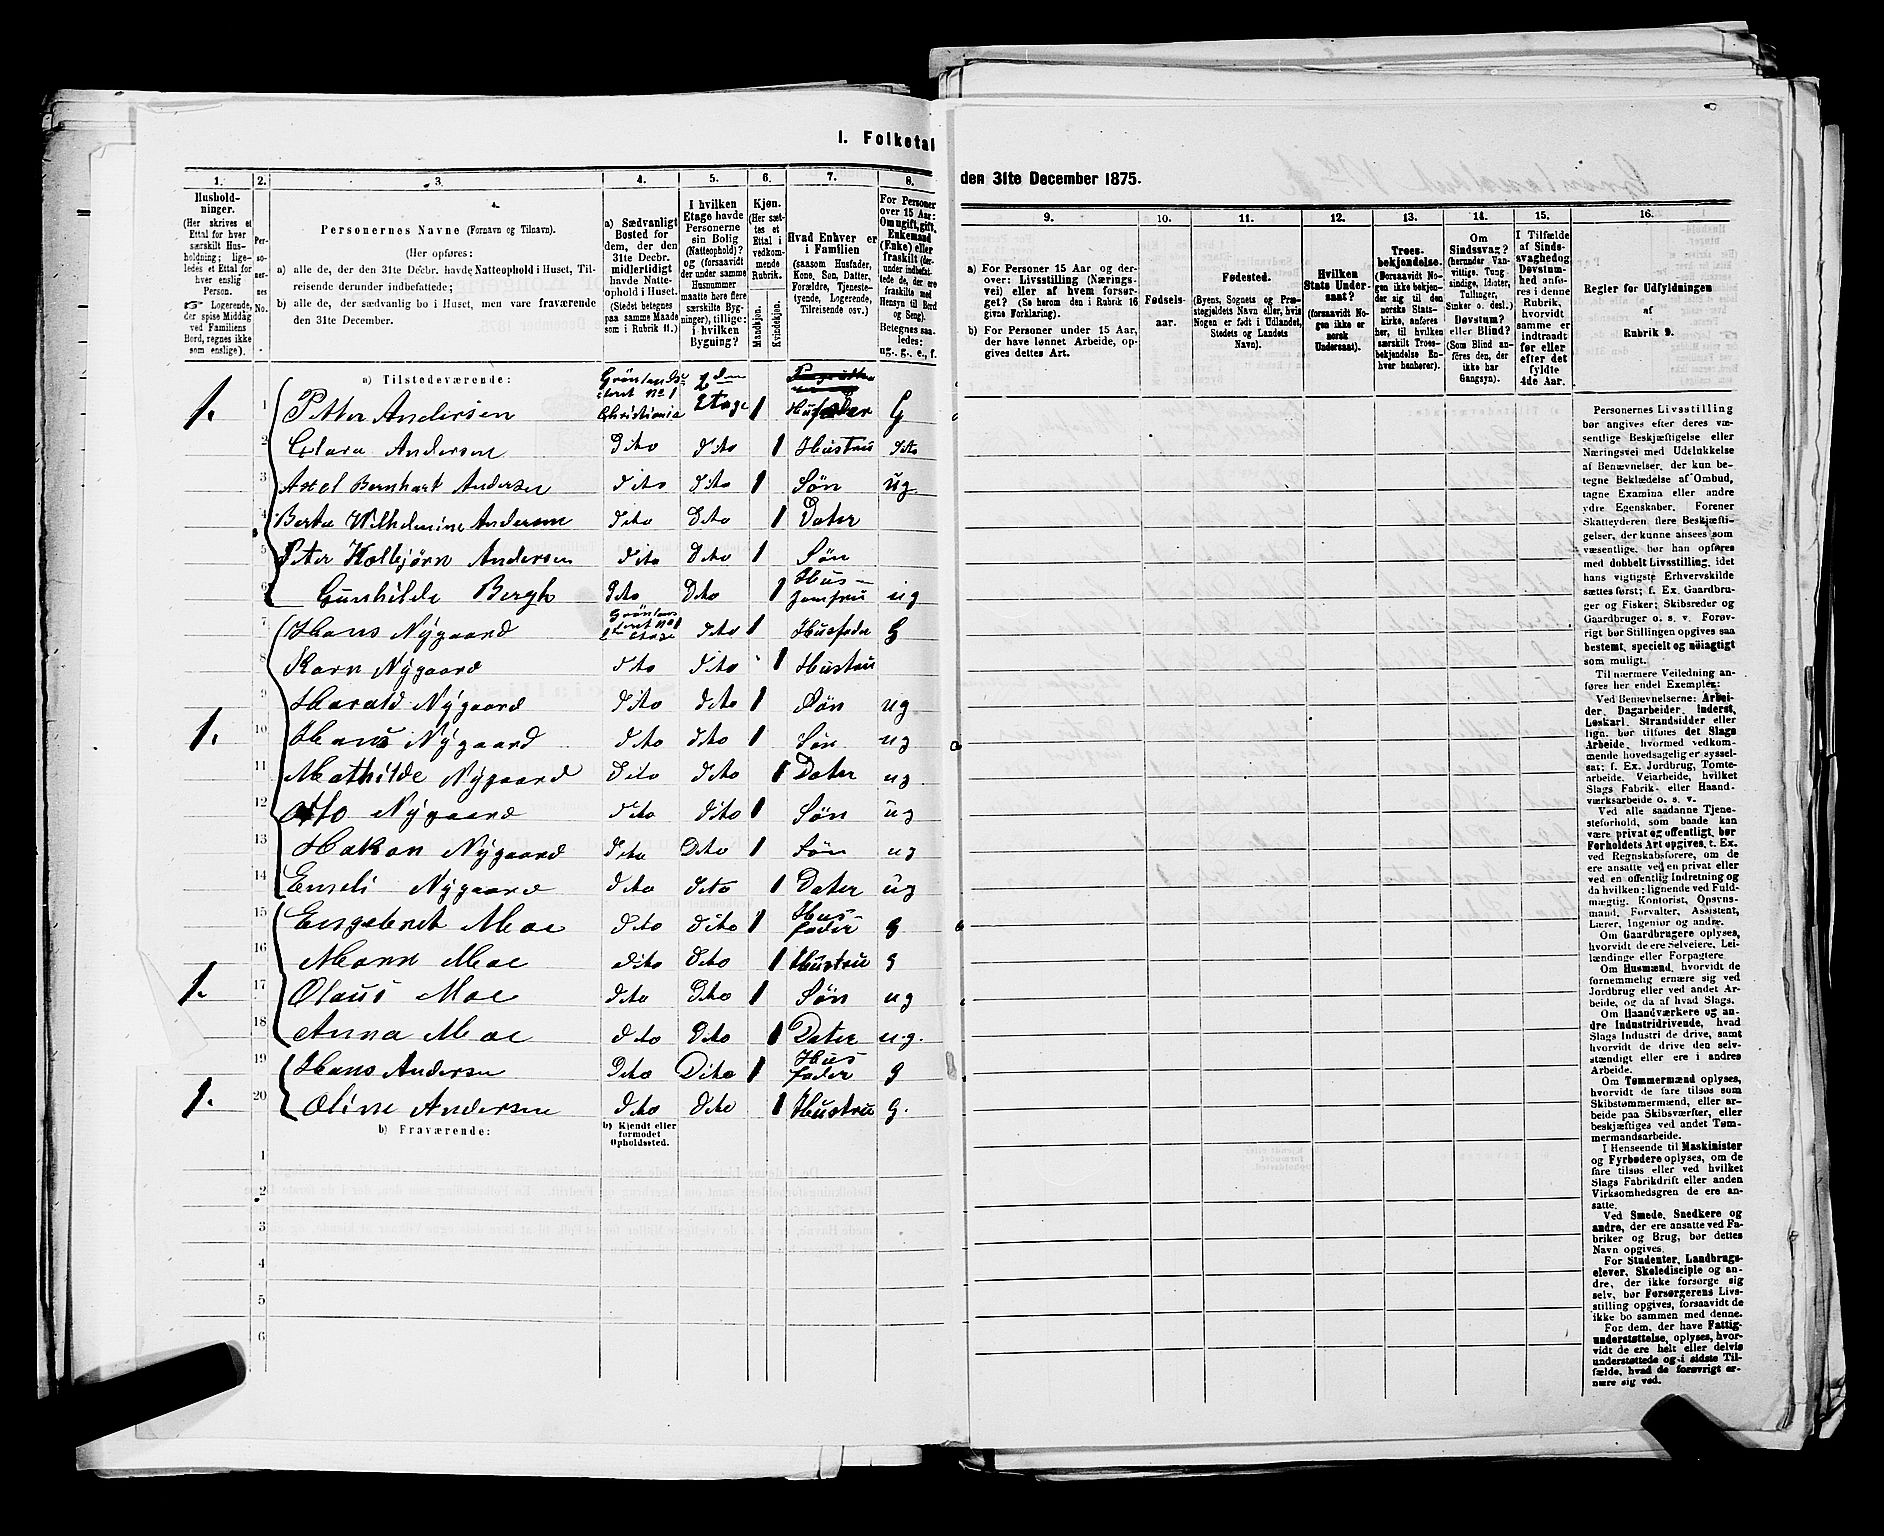 I. Folketal
den 31te December 1875.
1.
2.
3.
4.
5.
6.
7.
8.
9.
10.
11.
12.
13.
14.
15.
16.
Husholdninger.
(Her skrives et Ettal for hver særskilt Husholdning; ligeledes et Ettal for hver enslig Person.
☞ Logerende, der spise Middag ved Familiens Bord, regnes ikke som enslige).
Personernes No.
Personernes Navne (Fornavn og Tilnavn).
(Her opføres:
a) alle de, der den 31te Decbr. havde Natteophold i Huset, Tilreisende derunder indbefattede;
b) alle de, der sædvanlig bo i Huset, men vare fraværende den 31te December.
a) Sædvanligt Bosted for dem, der den 31te Decbr. midlertidigt havde Natteophold i Huset. (Stedet betegnes paa samme Maade som i Rubrik 11.)
I hvilken Etage havde Personerne sin Bolig (Natteophold)? og (forsaavidt der under samme Husnummer maatte høre flere særskilte Bygninger), tillige: i hvilken Bygning?
Kjøn.
(Her sættes et Ettal i vedkommende Rubrik.
Mandkjøn.
Kvindekjøn.
Hvad Enhver er i Familien
(saasom Husfader, Kone, Søn, Datter, Forældre, Tjenestetyende, Logerende, Tilreisende osv.)
For Personer over 15 Aar: Om ugift, gift, Enkemand (Enke) eller fraskilt
Betegnes saaledes: ug., g., e., f.
a) For Personer 15 Aar og derover: Livsstilling (Næringsvei) eller af hvem forsørget? (Se herom den i Rubrik 16 givne Forklaring).
b) For Personer under 15 Aar, der have lønnet Arbeide, opgives dettes Art.
Fødselsaar.
Fødested.
(Byens, Sognets og Præstegjeldets Navn, eller, hvis Nogen er født i Udlandet, Stedets og Landets Navn).
Hvilken Stats Undersaat?
(forsaavidt Nogen ikke er norsk Undersaat).
Troesbekjendelse.
(Forsaavidt Nogen ikke bekjender sig til den norske Statskirke, anføres her, til hvilken særskilt Troesbekjendelse Enhver henhører).
Om Sindssvag?
(herunder Vanvittige, Tungsindige, Idioter, Tullinger, Sinker o. desl.)
Døvstum?
eller Blind?
(Som Blind anføres den, der ikke har Gangsyn).
I Tilfælde af Sindssvaghed og Døvstumhed anføres i denne Rubrik, hvorvidt samme er indtraadt før eller efter det fyldte 4de Aar.
Regler for Udfyldningen
af
Rubrik 9.
a) Tilstedeværende:
1. 1 Petter Andersen Christiania 2den Etage 1 Husfader G
2 Clara Andersen Dito Dito 1 Hustru Dito
3 Axel Bernhart Andersen Dito Dito 1 Søn ug.
4 Berta Wilhelmine Andersen Dito Dito 1 Dater
5 Peter Kolbjørn Andersen Dito Dito 1 Søn
6 Gunhilde Bergh Dito Dito 1 Husjomfru ug
7 Hans Nygaard Dito 1 Husfader G
8 Karn Nygaard Dito Dito 1 Hustru
9 Harald Nygaard Dito Dito 1 Søn ug
1. 10 Hans Nygaard Dito Dito 1 Søn ug
11 Mathilde Nygaard Dito Dito 1 Dater ug
12 Otto Nygaard Dito Dito 1 Søn ug
13 Hakon Nygaard Dito Dito 1 Søn ug
14 Emeli Nygaard Dito Dito 1 Dater ug
15 Engebret Moe Dito Dito 1 Husfader g
16 Marn Moe Dito Dito 1 Hustru g
1. 17 Olaus Moe Dito Dito 1 Søn ug
18 Anna Moe Dito Dito 1 Dater ug.
19 Hans Andersen Dito Dito 1 Husfader g
1. 20 Oline Andersen Dito Dito 1 Hustru G.
b) Fraværende:
b) Kjendt eller formodet Opholdssted.
1
2
3
4
5
6
Personernes Livsstilling
bør angives efter deres væsentlige Beskjæftigelse eller
Næringsvei med Udelukkelse
af Benævnelser, der kun betegne Beklædelse af Ombud,
tagne Examina eller andre
ydre Egenskaber. Forener
Skatteyderen flere Beskjæftigelser, der kunne ansees som
væsentlige, bør han opføres
med dobbelt Livsstilling, idet
hans vigtigste Erhvervskilde
sættes først; f. Ex. Gaardbruger og Fisker; Skibsreder og
Gaardbruger o. s. v. Forøvrigt bør Stillingen opgives saa
bestemt, specielt og nøiagtigt
som muligt.
Til nærmere Veiledning anføres her endel Exempler:
Ved Benævnelserne: Arbeider, Dagarbeider, Inderst,
Løskarl, Strandsidder eller
lign. bør tilføies det Slags
Arbeide, hvormed vedkommende hovedsagelig er sysselsat; f. Ex. Jordbrug, Tomtearbeide, Veiarbeide, hvilket
Slags Fabrik- eller Haandværksarbeide o. s. v.
Ved alle saadanne Tjenesteforhold, som baade kan
være privat og offentligt, bør
Forholdets Art opgives, t. Ex.
ved Regnskabsførere, om de
ere ansatte ved en privat eller
ved en offentlig Indretning og
da hvilken; lignende ved Fuldmægtig, Kontorist, Opsynsmand, Forvalter, Assistent,
Lærer, Ingeniør og andre.
Om Gaardbrugere oplyses,
hvorvidt de ere Selveiere, Leilændinge eller Forpagtere.
Om Husmænd, hvorvidt de
fornemmelig ernære sig ved
Jordbrug eller ved andet Arbeide, og da af hvad Slags.
Om Haandværkere og andre Industridrivende, hvad
Slags Industri de drive, samt
hvorvidt de drive den selvstændigt eller ere i andres
Arbeide.
Om Tømmermænd oplyses,
hvorvidt de fare tilsøs som
Skibstømmermænd, eller arbeide paa Skibsværfter, eller
beskjæftiges ved andet Tømmermandsarbeide.
I Henseende til Maskinister
og Fyrbødere oplyses, om de
fare tilsøs eller ved hvilket
Slags Fabrikdrift eller anden
Virksomhedsgren de ere ansatte.
Ved Smede, Snedkere og
andre, der ere ansatte ved Fabriker og Brug, bør dettes
Navn opgives.
For Studenter, Landbrugselever, Skoledisciple og andre, der ikke forsørge sig
selv, bør Forsørgerens Livsstilling opgives, forsaavidt de
ikke bo sammen med denne.
For dem, der have Fattigunderstøttelse, oplyses, hvorvidt de ere helt eller delvis
understøttede og i sidste Tilfælde, hvad de forøvrigt ernære sig ved.